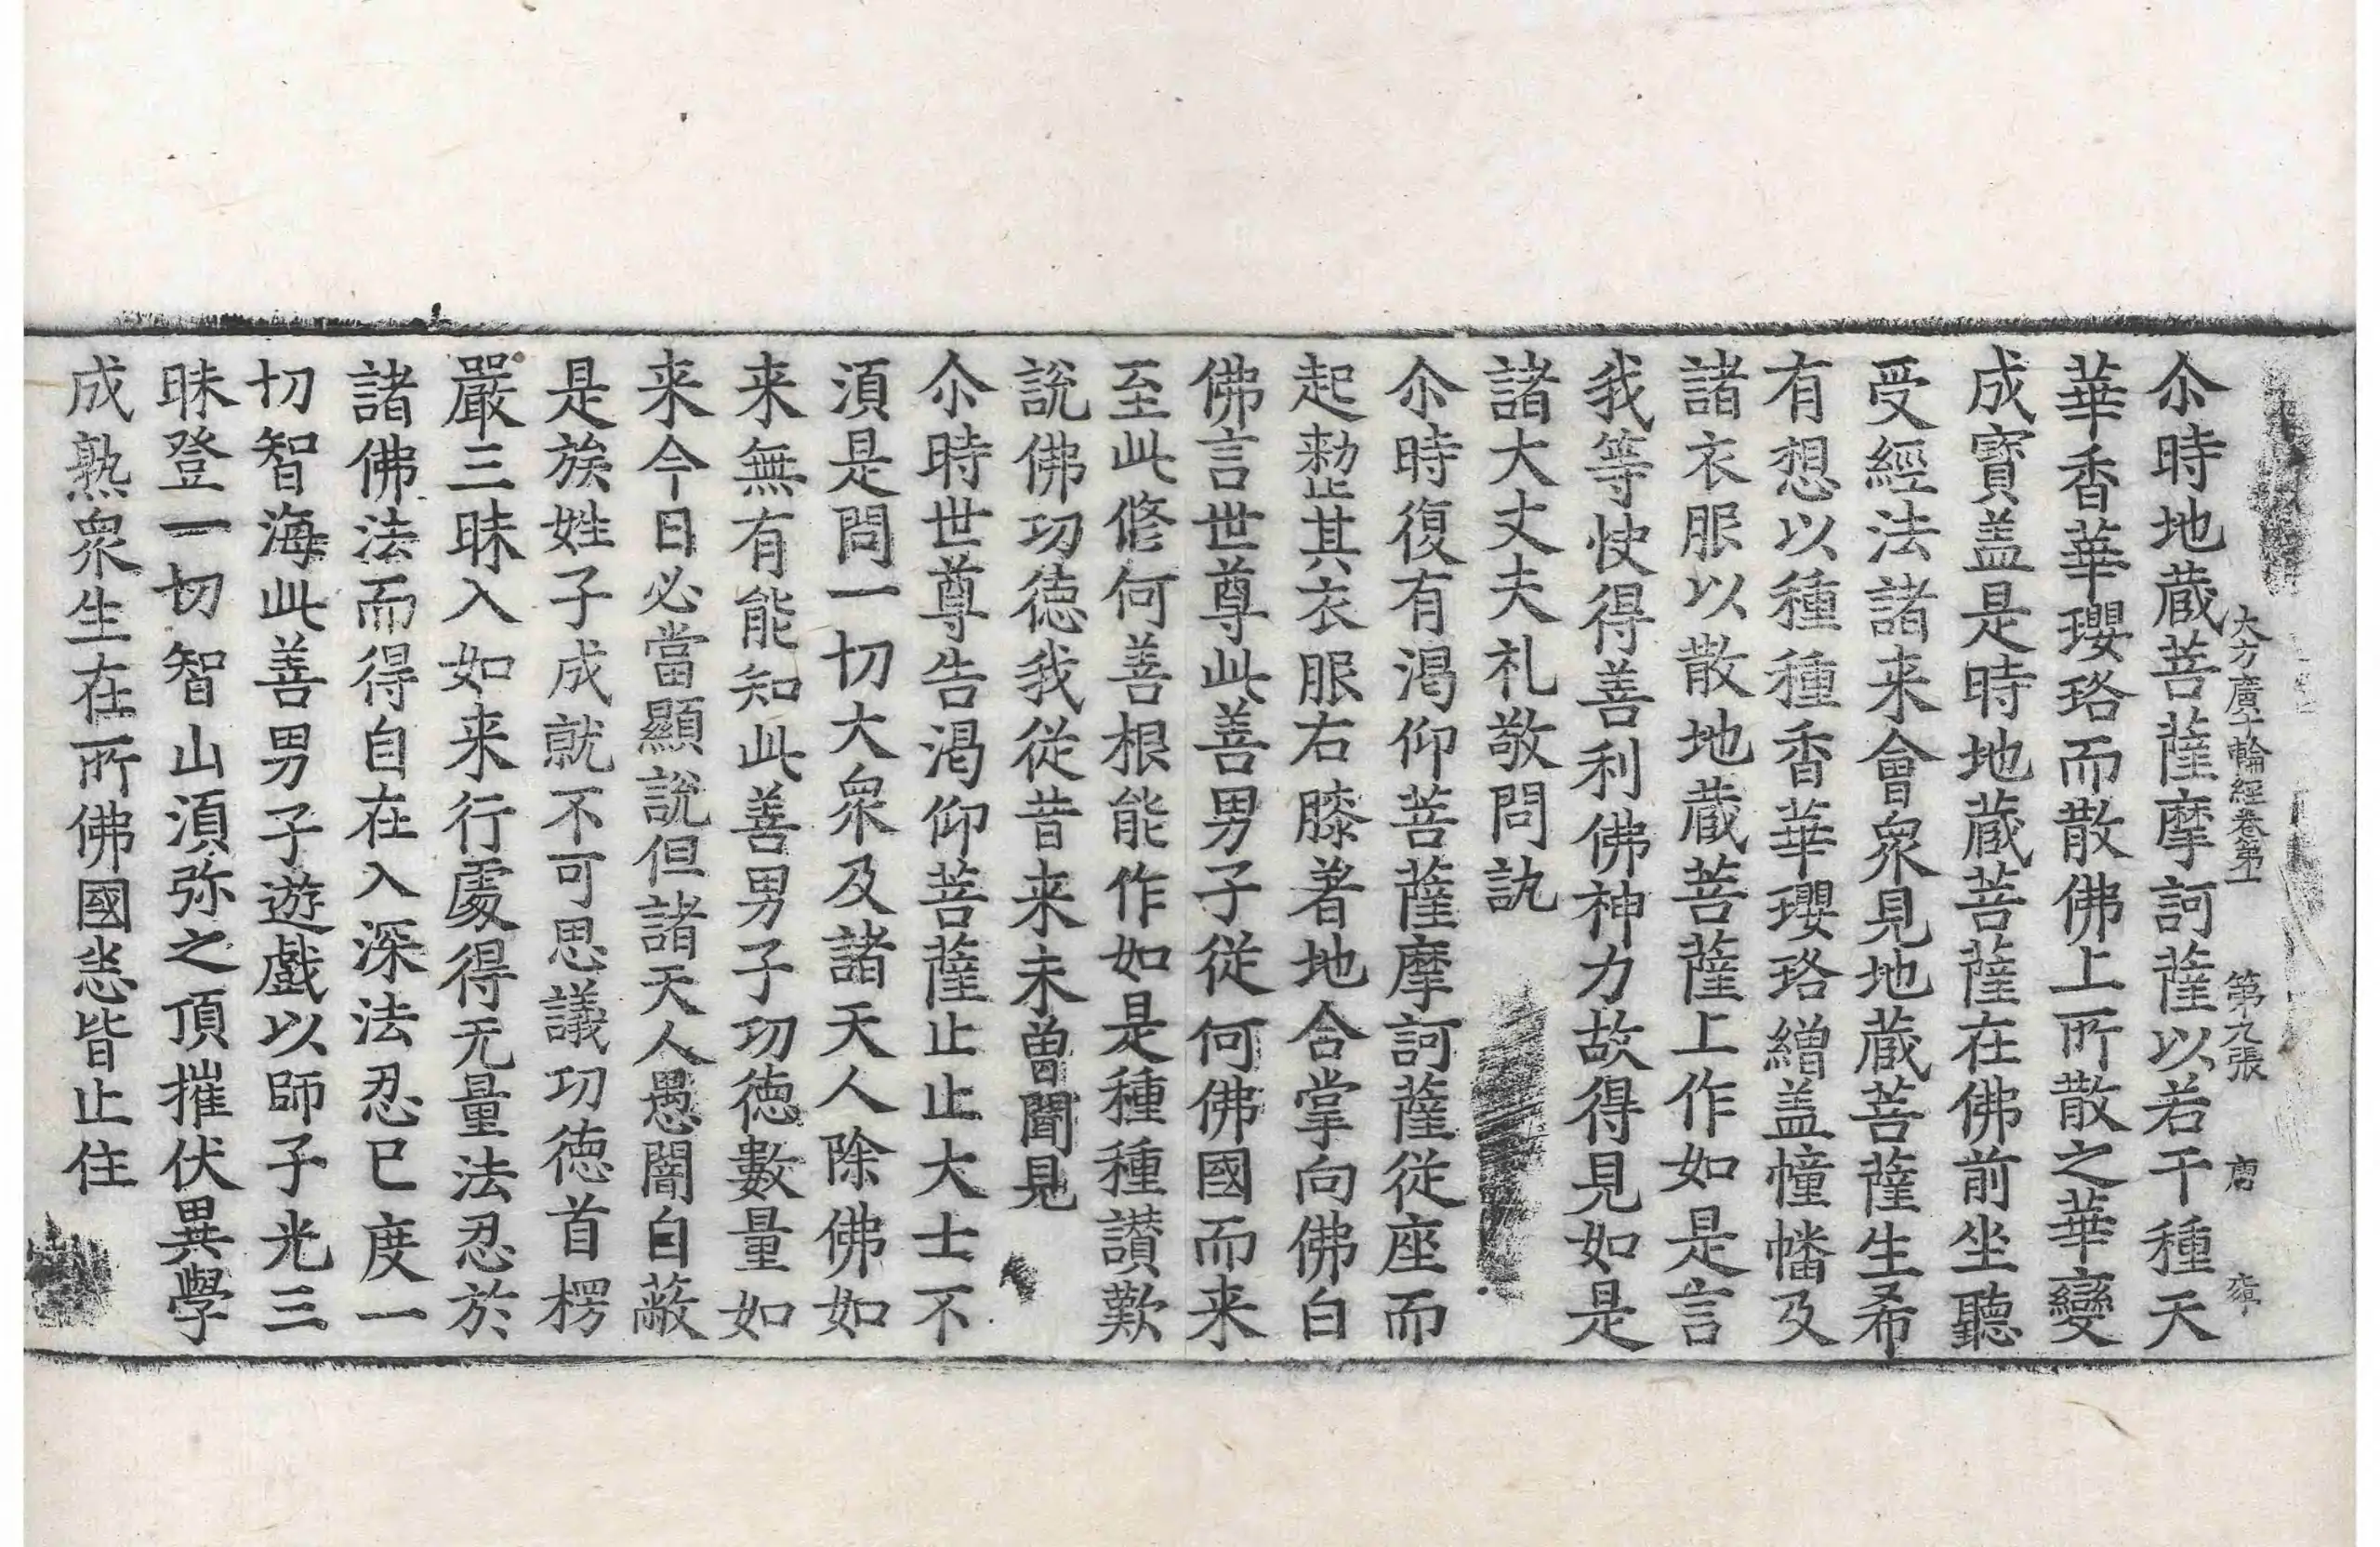 大方廣十輪經卷第一 第九張 唐
尒時地蔵菩薩摩訶薩以若干種天
華香華瓔珞而散佛上所散之華變
成寳盖是時地蔵菩薩在佛前坐聽
受經法諸来會衆見地蔵菩薩生希
有想以種種香華瓔珞繒盖幢幡及
諸衣服以散地蔵菩薩上作如是言
我等快得善利佛神力故得見如是
諸大丈夫礼敬問訊
尒時復有渇仰菩薩摩訶薩從座而
起整其衣服右膝著地合掌向佛白
佛言世尊此善男子從何佛國而来
至此修何善根能作如是種種讃歎
說佛功徳我從昔来未曽聞見
尒時世尊告渇仰菩薩止止大士不
湏是問一切大衆及諸天人除佛如
来無有能知此善男子功徳數量如
来今日必當顯說但諸天人愚闇自蔽
是族姓子成就不可思議功徳首楞
嚴三昧入如来行處得无量法忍於
諸佛法而得自在入深法忍已度一
切智海此善男子遊戲以師子光三
昧登一切智山湏弥之頂摧伏異學
成熟衆生在所佛國悉皆止住